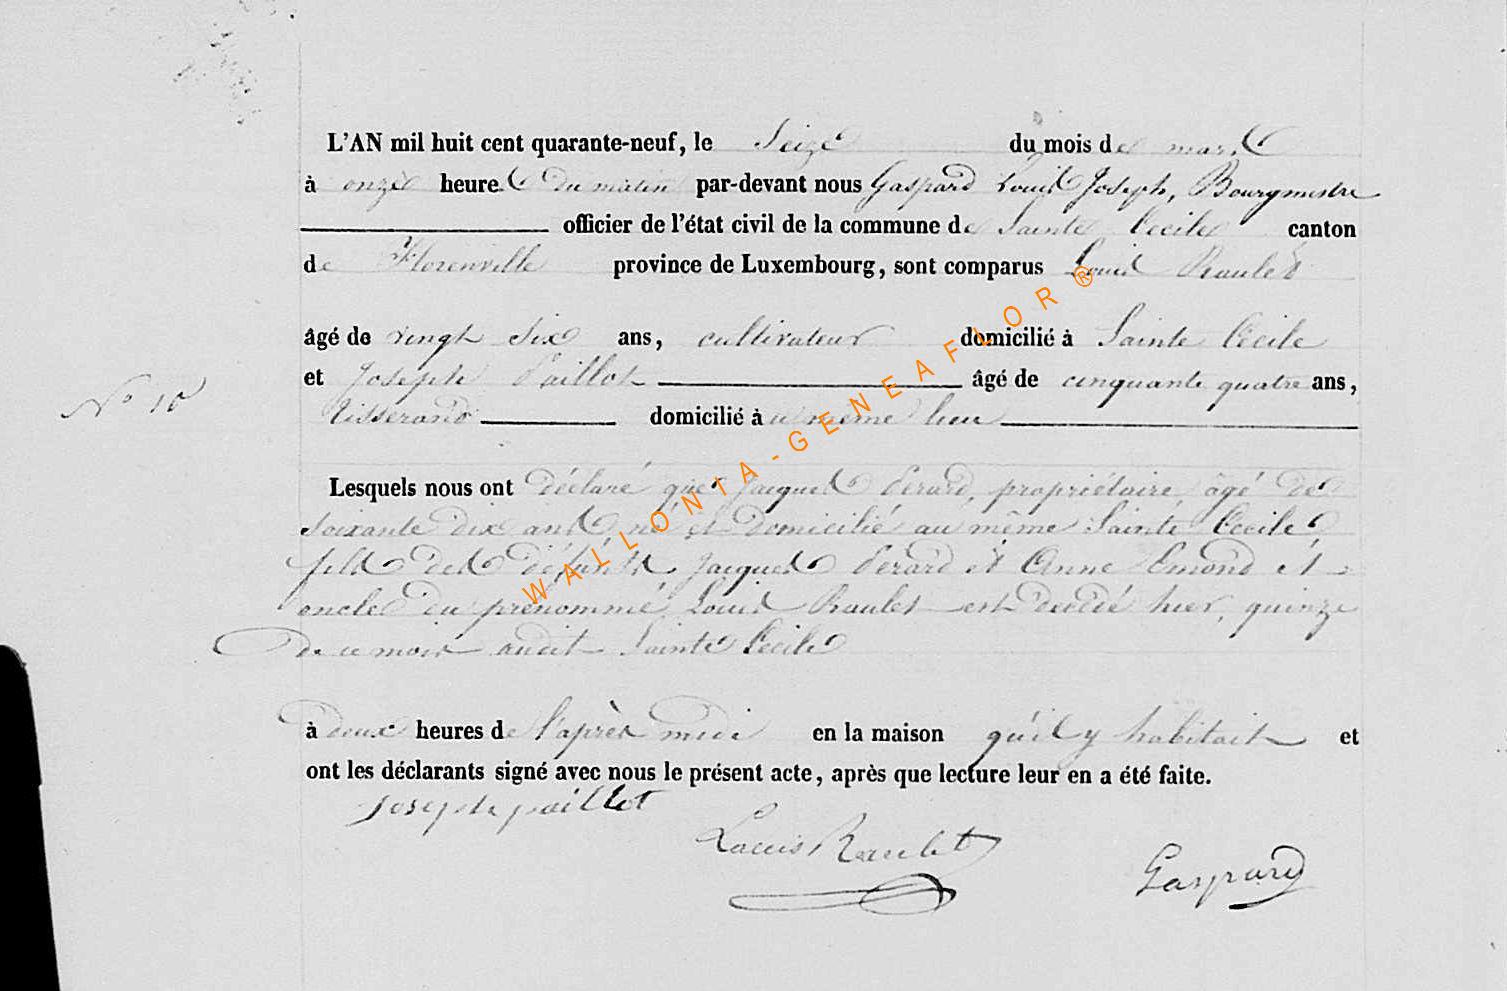 L'AN mil huit cent quarante-neuf, le Seize du mois de mars
à onze heures du matin par-devant nous Gaspard Louis Joseph, Bourgmestre
officier de l'état civil de la commune de Sainte Cecile canton
de Florenville province de Luxembourg, sont comparus Louis Raulet
âgé de vingt six ans, cultivateur domicilié à Sainte Cécile
et Joseph Paillot âgé de cinquante quatre ans,
Tisserand domicilié au même lieu
N° 10
Lesquels nous ont déclaré que Jacques Perard, propriétaire âgé de
soixante dix ans né et domicilié au même Sainte Cecile
fils des défunts Jacques Perard et Anne Emond et
oncle du prénommé Louis Raulet est décédé hier, quinze
de ce mois audit Sainte Cécile
à deux heures de l'après midi en la maison qu'il y habitait et
ont les déclarants signé avec nous le présent acte, après que lecture leur en a été faite.
Joseph paillot
Louis Raulet
Gaspard
WALLONIA-GENEAFLOR®